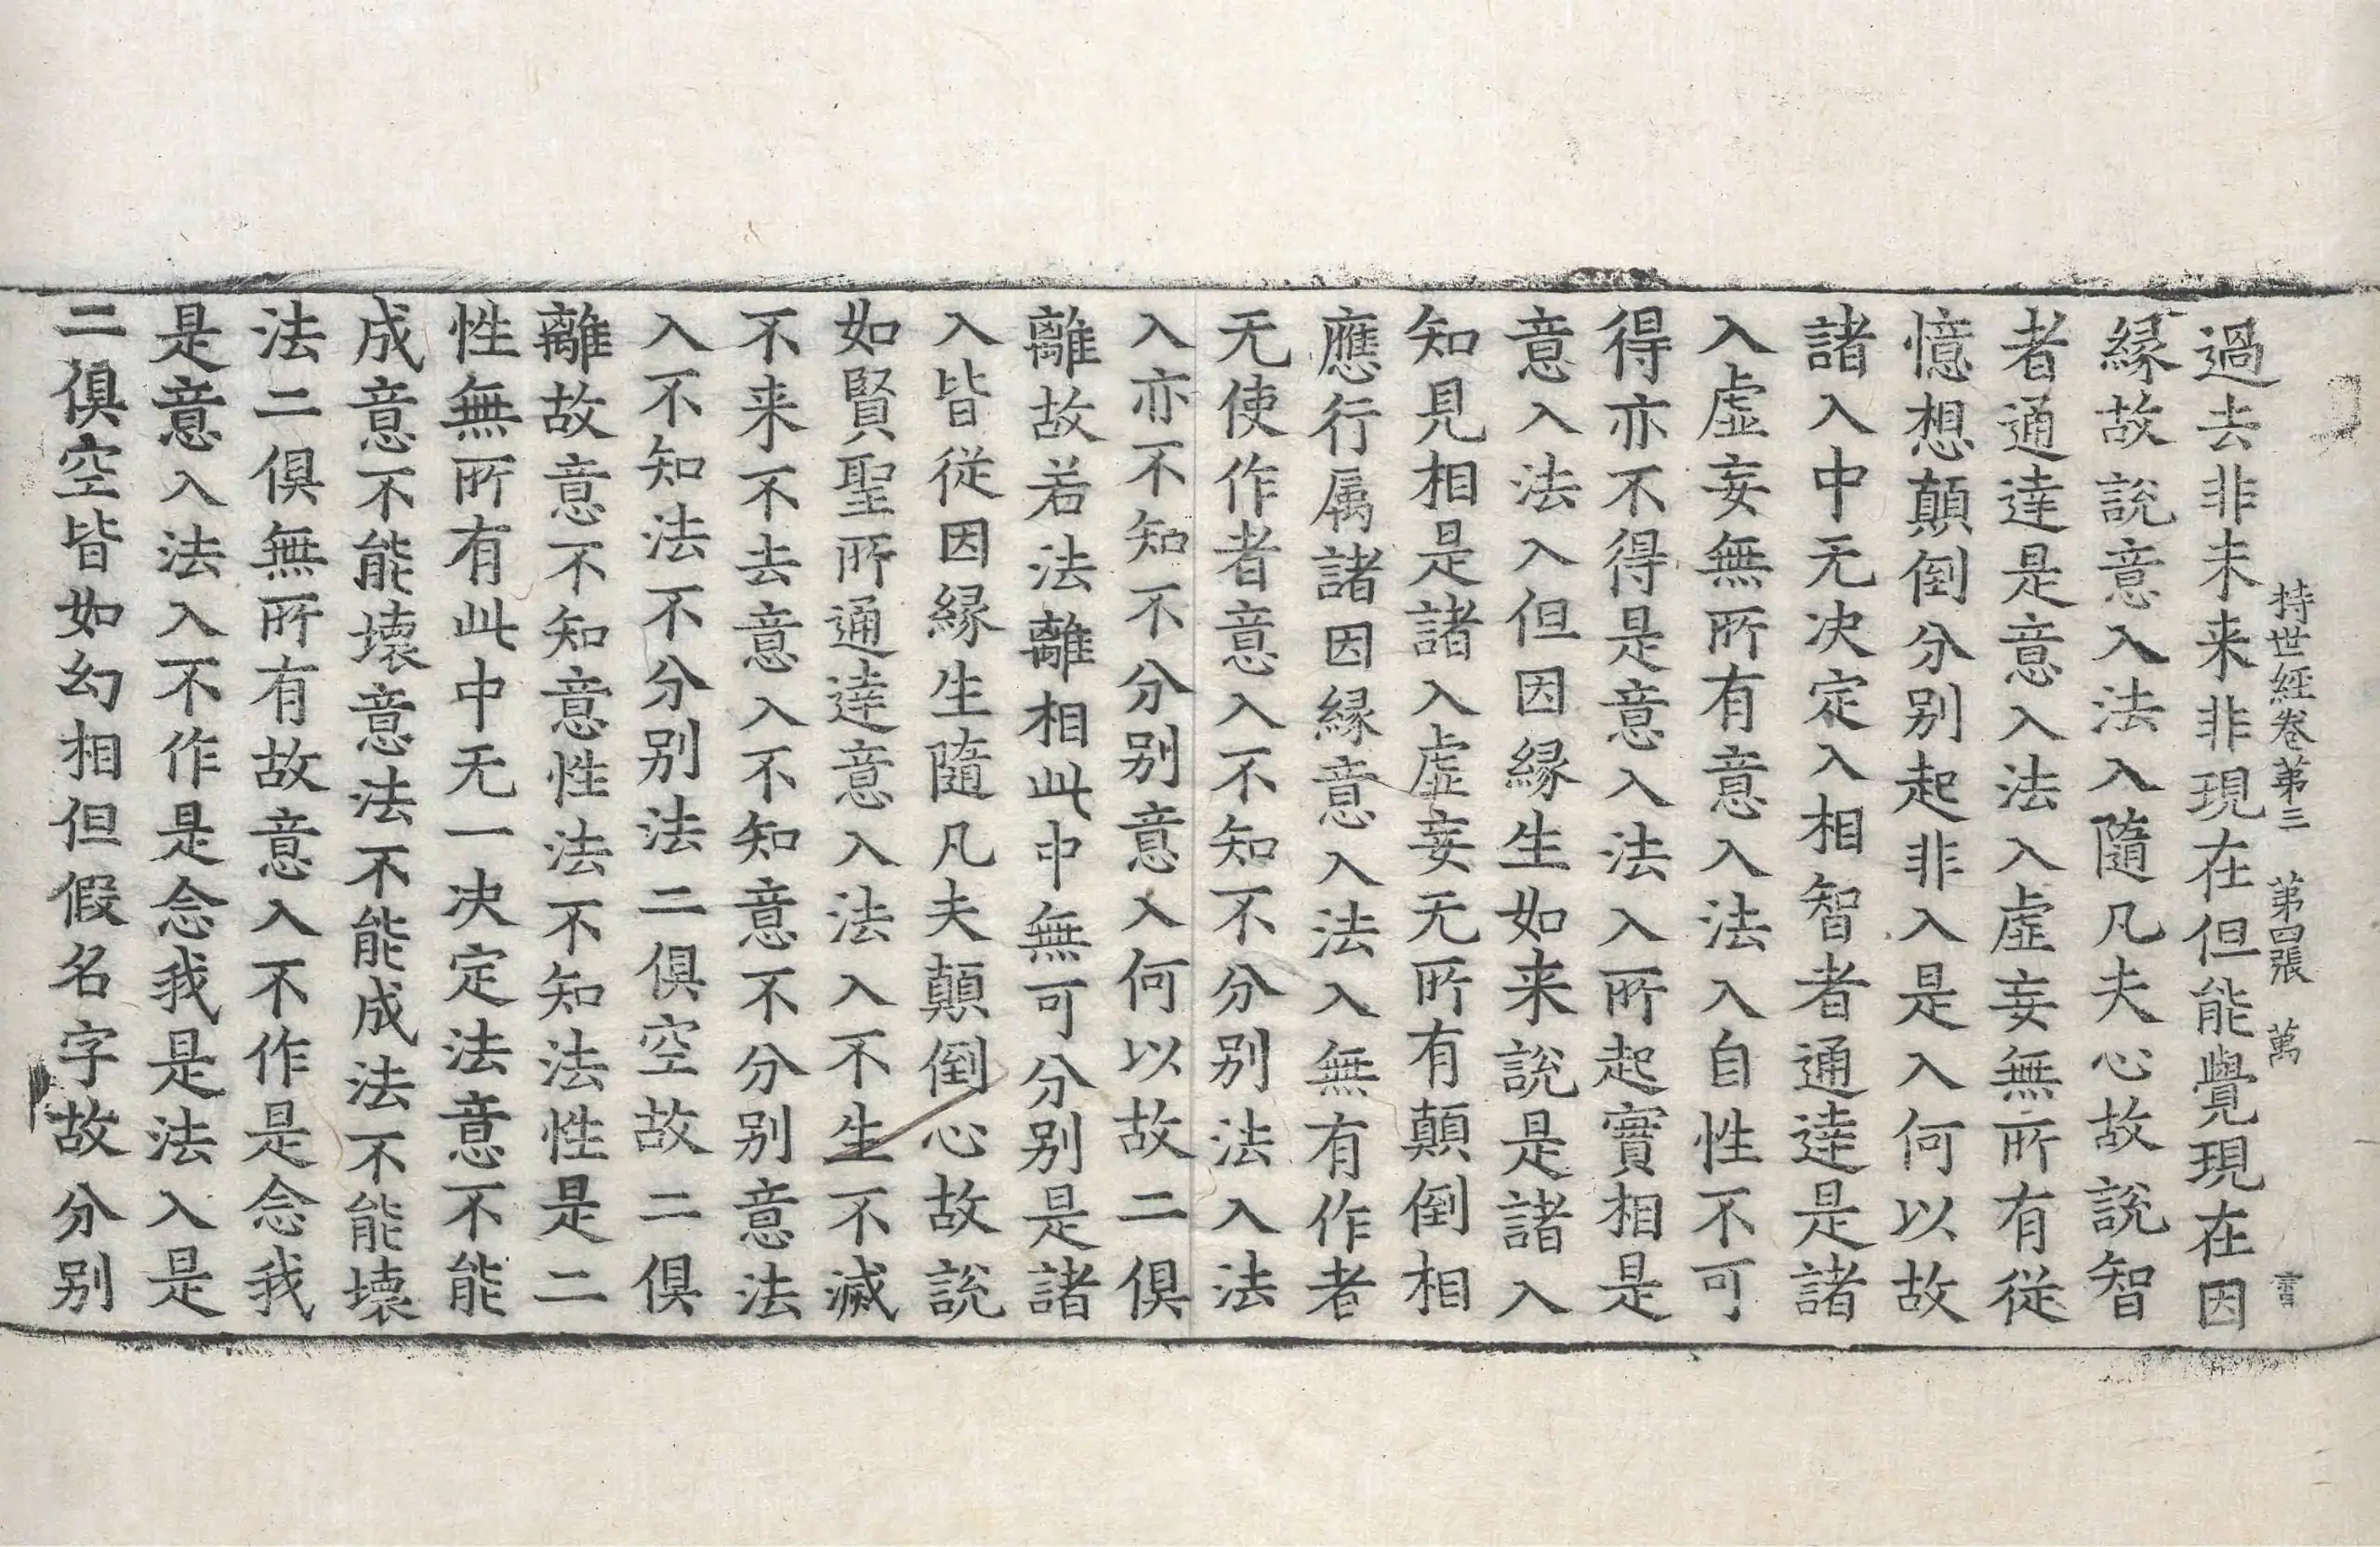 持世經卷第三　第四張　萬
過去非未来非現在但能覺現在因
縁故說意入法入隨凡夫心故說智
者通達是意入法入虛妄無所有從
憶想顛倒分别起非入是入何以故
諸入中无决定入相智者通達是諸
入虛妄無所有意入法入自性不可
得亦不得是意入法入所起實相是
意入法入但因縁生如来說是諸入
知見相是諸入虛妄无所有顛倒相
應行属諸因縁意入法入無有作者
无使作者意入不知不分别法入法
入亦不知不分别意入何以故二俱
離故若法離相此中無可分别是諸
入皆從因縁生隨凡夫顛倒心故說
如賢聖所通達意入法入不生不滅
不来不去意入不知意不分别意法
入不知法不分别法二俱空故二俱
離故意不知意性法不知法性是二
性無所有此中无一决定法意不能
成意不能壞意法不能成法不能壞
法二俱無所有故意入不作是念我
是意入法入不作是念我是法入是
二俱空皆如幻相但假名字故分别